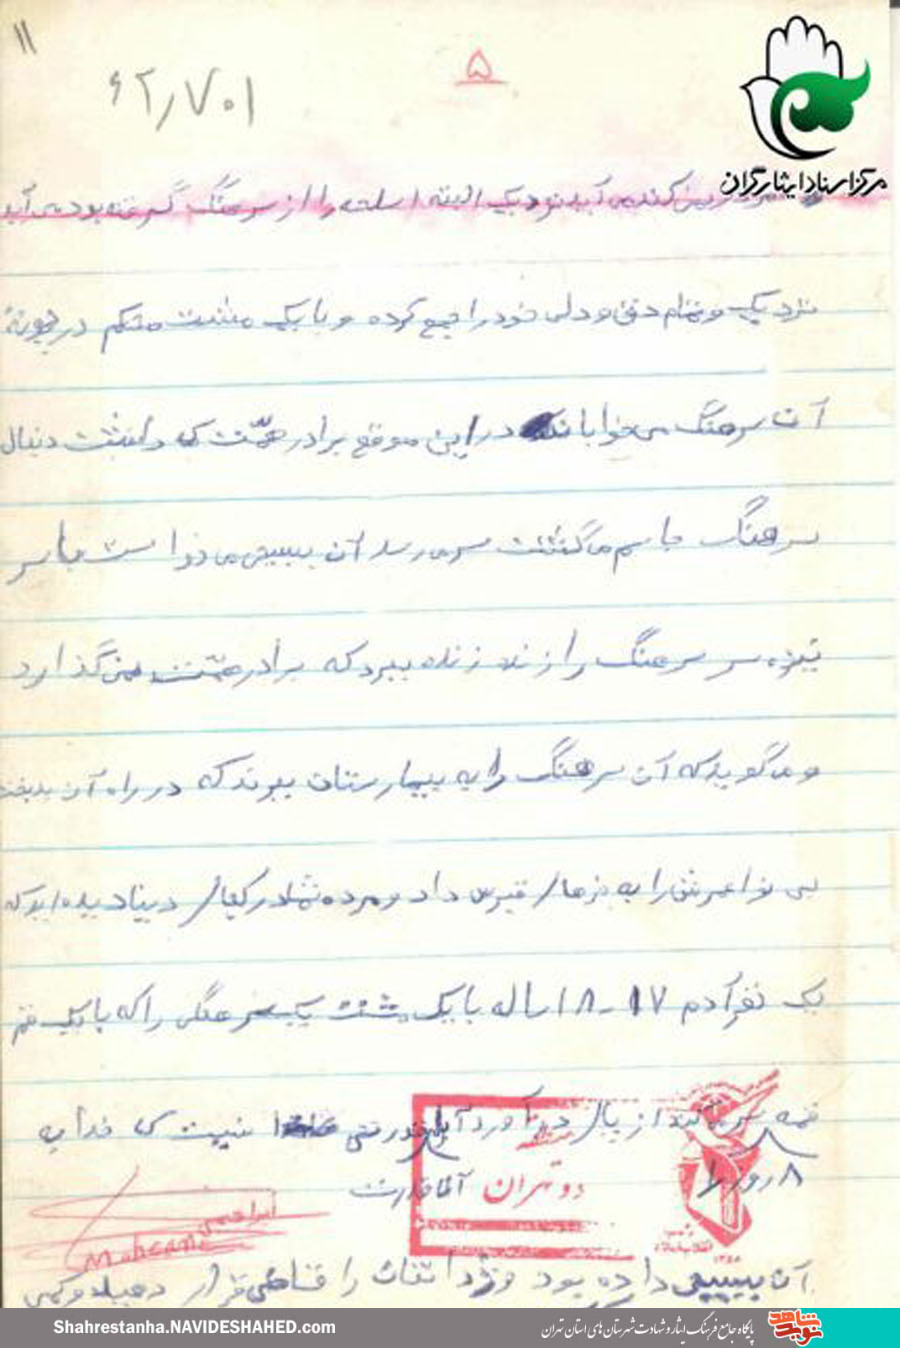 ۱۱
۵
۶۲٫۷۰۱
مرکز اسناد ایثارگران
کند می‌آید نزدیک البته اسلحه را از سرهنگ گرفته بود می‌آید
نزدیک و تمام دق و دلی خود را جمع کرده و با یک مشت محکم در چونهٔ
آن سرهنگ می‌خواباند در این موقع برادر همّت که داشت دنبال
سرهنگ جاسم می‌گشت سر می‌رسد آن بسیجی می‌خواست با سر
نیزه سر سرهنگ را زنده زنده ببرد که برادر همّت نمی‌گذارد
و می‌گوید که آن سرهنگ را به بیمارستان ببرند که در راه آن بدبخت
بی نوا عمرش را به داد و مرده شما در کجای دنیا دیده‌اید که
یک نفر آدم ۱۷-۱۸ ساله با یک مشت یک سرهنگی را که با یک
از پای در آورد آیا نیست که خدا به
۸ روز را
دو تهران
آقا قدرت
Mohsen
آن بسیجی داده بود را
Shahrestanha.NAVIDESHAHED.com
پایگاه جامع فرهنگ ایثار و شهادت شهرستان های استان تهران
نوید شاهد